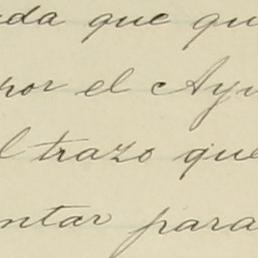 ada que qu
por el Ayu
l trazo que
ntar para